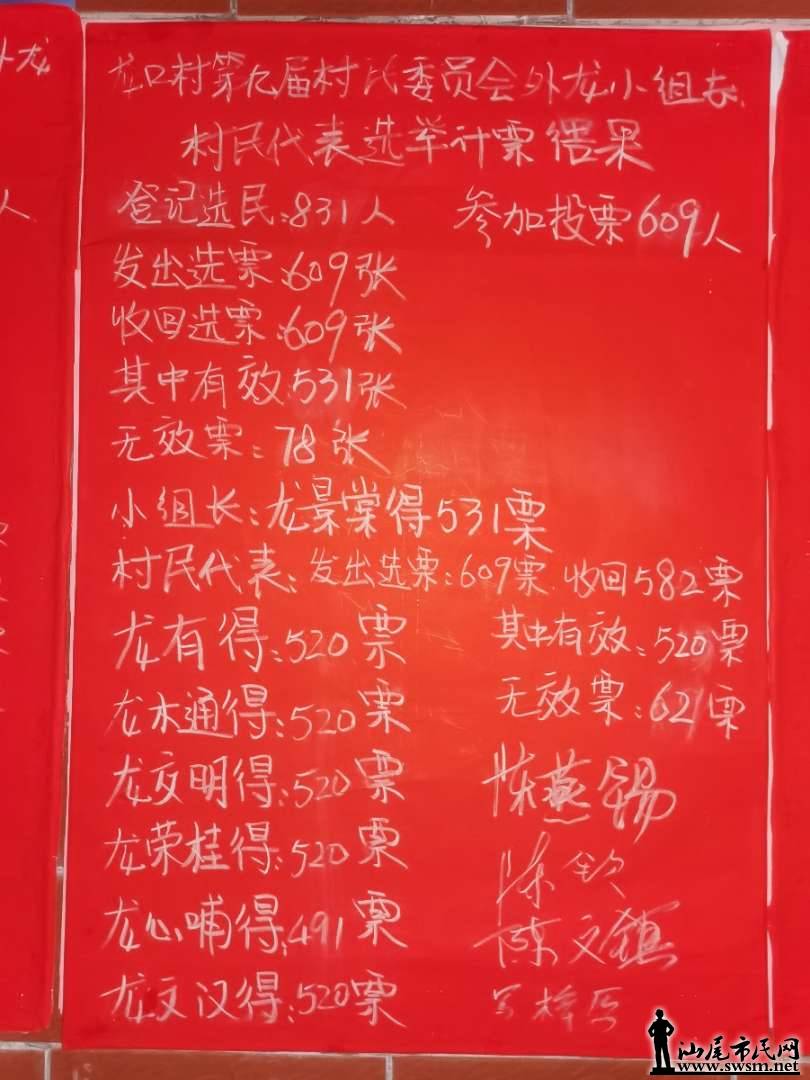 龙口村第九届村民委员会外龙小组长
村民代表选举计票结果
登记选民:831人 参加投票609人
发出选票:609张
收回选票:609张
其中有效:531张
无效票:78张
小组长:龙景棠得531票
村民代表:发出选票:609票 收回582票
龙有得:520票 其中有效:520票
龙木通得:520票 无效票:62票
龙文明得:520票
陈燕锡
龙荣桂得:520票
陈钦
龙心哺得:491票
陈文镇
龙文汉得:520票
外龙
人
汕尾市民网
www.swsm.net